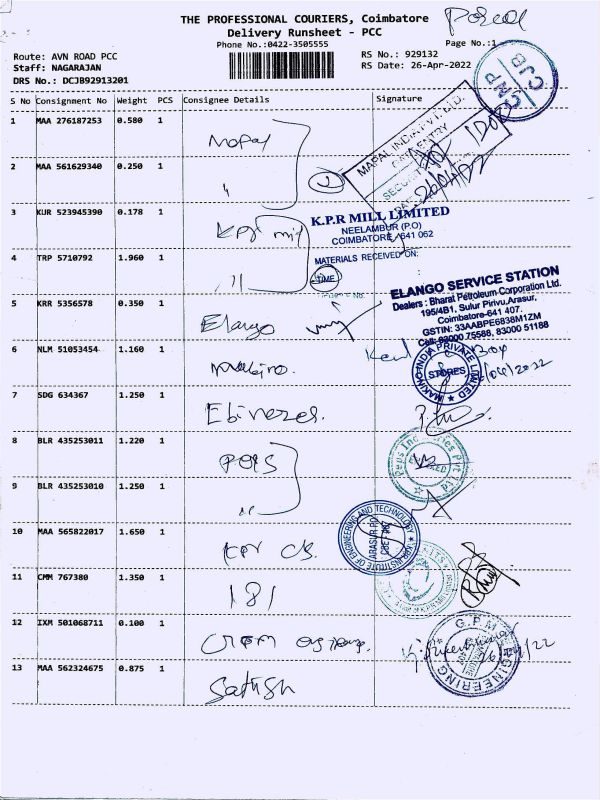 THE PROFESSIONAL COURIERS, Coimbatore
Delivery Runsheet - PCC
Phone No.:0422-3505555
Page No.:1
Route: AVN ROAD PCC
Staff: NAGARAJAN
DRS No.: DCJB92913201
RS No.: 929132
RS Date: 26-Apr-2022
CJB
S No Consignment No Weight PCS Consignee Details Signature
1 MAA 276187253 0.580 1
MAPAL INDIA PVT. LTD.
2 MAA 561629340 0.250 1 " 2
3 KUR 523945390 0.178 1 KPR mill
K.P.R MILL LIMITED
NEELAMBUR (P.O)
COIMBATORE - 641 062
4 TRP 5710792 1.960 1 "
MATERIALS RECEIVED ON:
TIME
5 KRR 5356578 0.350 1 Elango
ELANGO SERVICE STATION
Dealers : Bharat Petroleum Corporation Ltd.
195/4B1, Sulur Pirivu, Arasur,
Coimbatore-641 407.
GSTIN: 33AABPE6838M1ZM
Cell: 83000 75588, 83000 51188
6 NLM 51053454 1.160 1 Makino.
MAKINO INDIA PRIVATE LIMITED
STORES
7 SDG 634367 1.250 1 Ebinezer.
8 BLR 435253011 1.220 1
Peps Industries Pvt Ltd
9 BLR 435253010 1.250 1 "
10 MAA 565822017 1.650 1 KPR
KPR INSTITUTE OF ENGINEERING AND TECHNOLOGY
ARASUR PO
CBE-407
11 CMM 767380 1.350 1
12 IXM 501068711 0.100 1
G.P.M ENGINEERING
13 MAA 562324675 0.875 1 Sathish